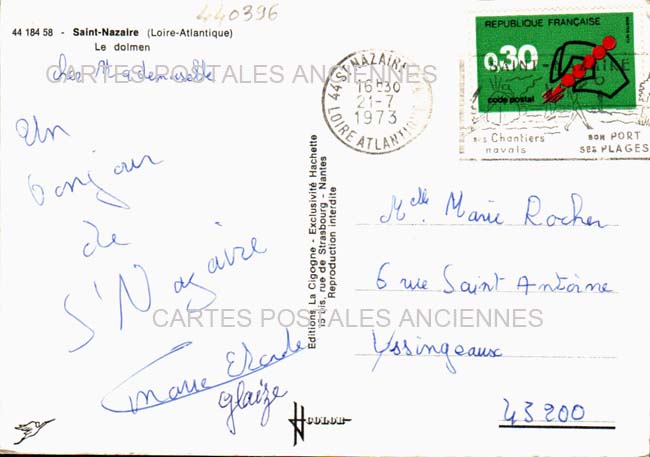 440396
44 184 58 - Saint-Nazaire (Loire-Atlantique)
Le dolmen
cher Mademoiselle
CARTES POSTALES ANCIENNES
Un
bonjour
de
St Nazaire
CARTES POSTALES ANCIENNES
Marie
glaize
Editions La Cigogne - Exclusivité Hachette
15 bis, rue de Strasbourg - Nantes
Reproduction interdite
COLOR
44 ST NAZAIRE
16H30
21-7
1973
LOIRE ATLANTIQUE
REPUBLIQUE FRANÇAISE
0,30
code postal
SAINT-NAZAIRE
ses Chantiers
navals
son PORT
SES PLAGES
Melle. Marie Rocher
6 rue Saint Antoine
Yssingeaux
43200